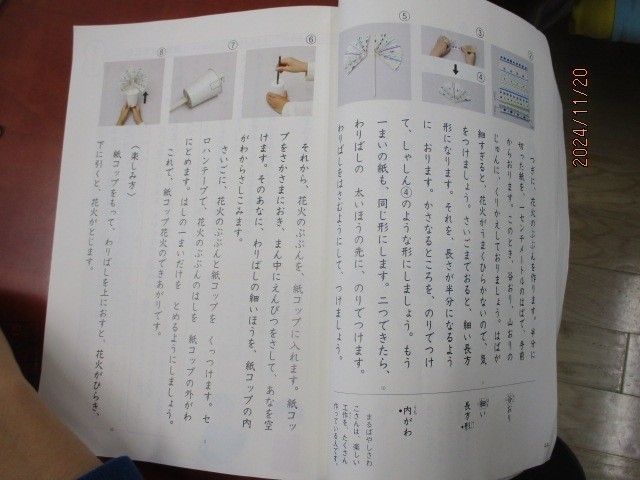 ②
つぎに、花火のぶぶんを作ります。半分に
切った紙を、一センチメートルのはばで、手前
からおります。このとき、谷おり、山おりの
じゅんに、くりかえしておりましょう。はばが
細すぎると、花火がうまくひらかないので、気
をつけましょう。さいごまでおると、細い長方
形になります。それを、長さが半分になるよう
に おります。かさなるところを、のりでつけ
て、しゃしん④のような形にしましょう。もう
一まいの紙も、同じ形にします。二つできたら、
わりばしの 太いほうの先に、のりでつけます。
わりばしをはさむようにして、つけましょう。
③
④
⑤
谷おり
細い
長方形
内がわ
うち
まるばやしさわ
こさんは、楽しい
工作を、たくさん
作っているんです。
⑥
それから、花火のぶぶんを、紙コップに入れます。紙コッ
プをさかさまにおき、まん中にえんぴつをさして、あなを空
けます。そのあなに、わりばしの細いほうを、紙コップの内
がわからさしこみます。
⑦
さいごに、花火のぶぶんと紙コップを くっつけます。セ
ロハンテープで、花火のぶぶんのはしを 紙コップの外がわ
にとめます。はしの一まいだけを とめるようにしましょう。
これで、紙コップ花火のできあがりです。
⑧
〈楽しみ方〉
紙コップをもって、わりばしを上におすと、花火がひらき、
下に引くと、花火がとじます。
2024/11/20